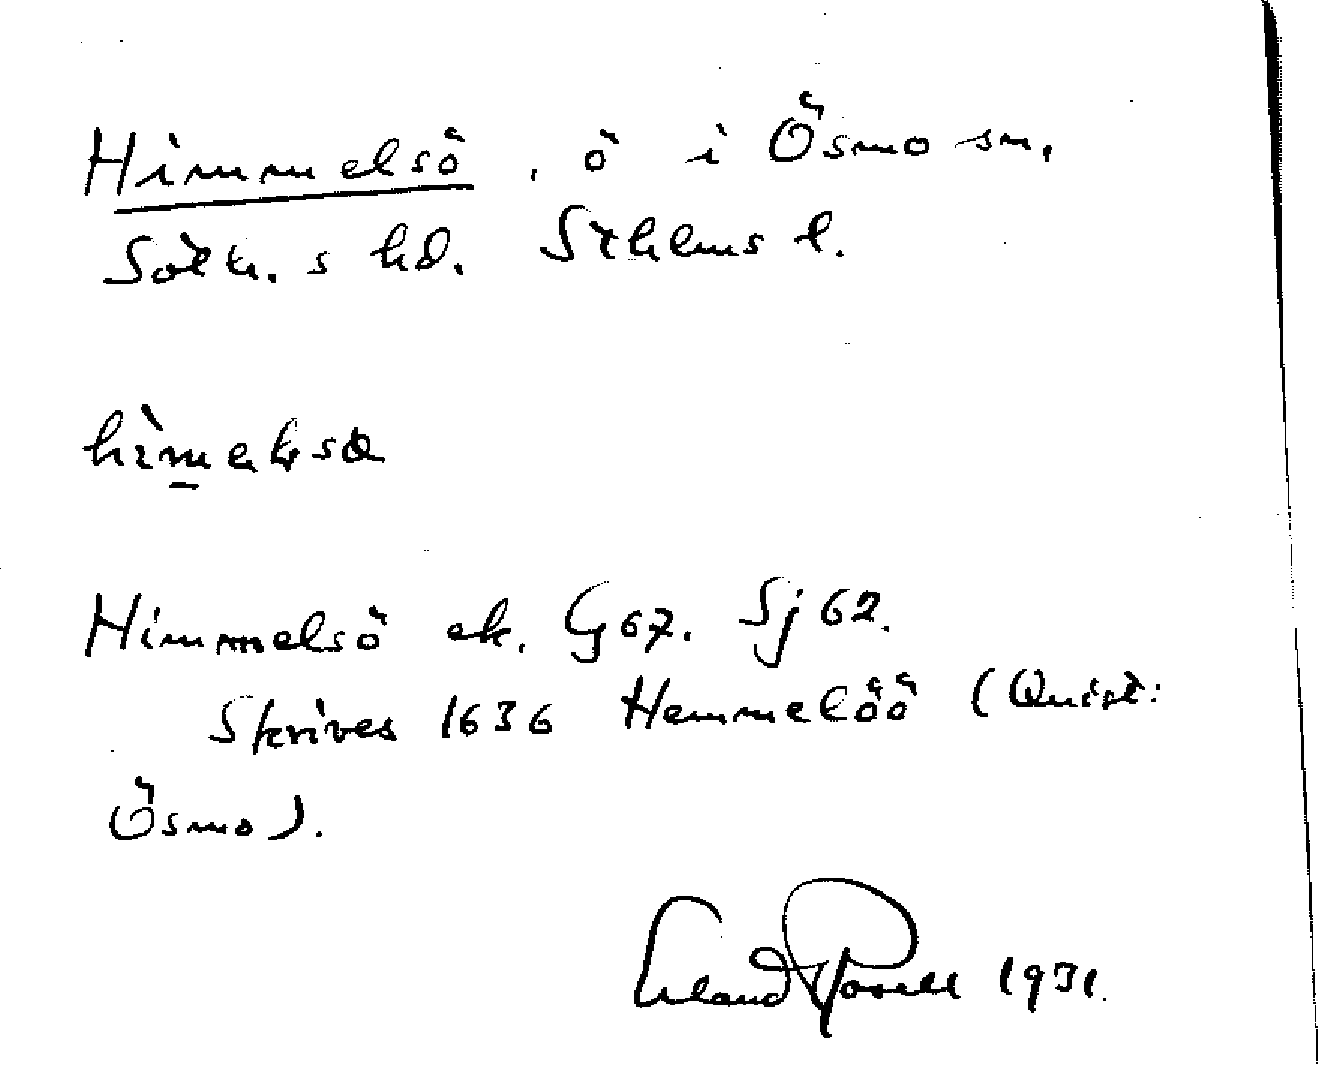 Himmelsö, ö i Ösmo sn,
Soth. s hd. Sthlms l.
Himmelsö ek. G67. Sj 62.
Skrives 1636 Hemmelöö (Quist:
Ösmo).
Erland Rosell 1931.